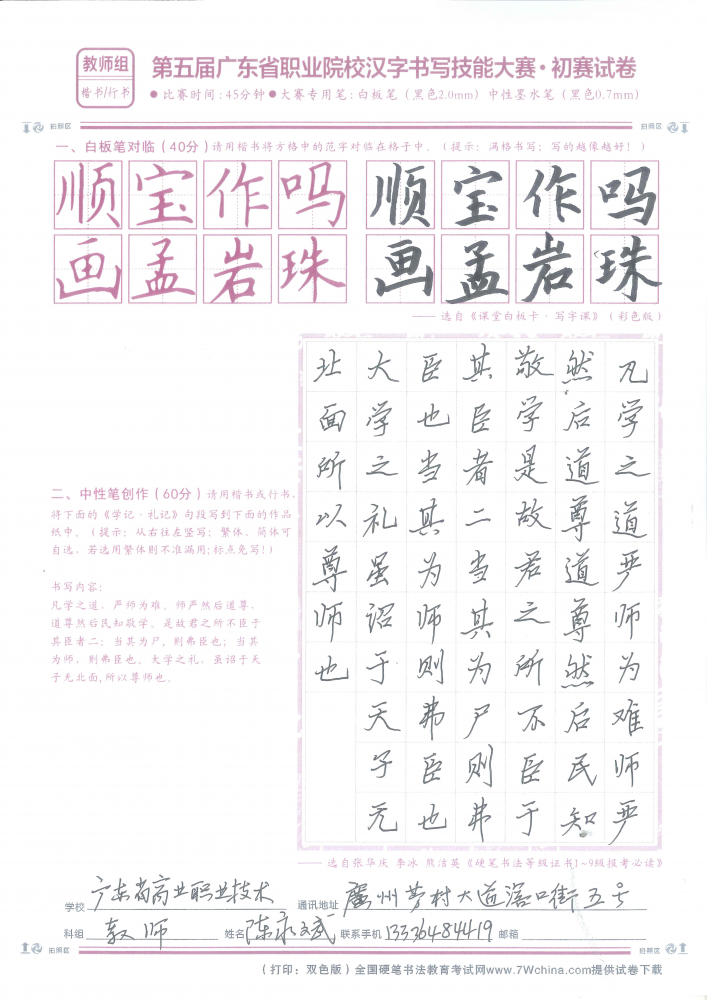 教师组
楷书/行书
第五届广东省职业院校汉字书写技能大赛·初赛试卷
●比赛时间:45分钟●大赛专用笔:白板笔（黑色2.0mm）中性墨水笔（黑色0.7mm）
拍照区
拍照区
一、白板笔对临（40分）请用楷书将方格中的范字对临在格子中。（提示：满格书写；写的越像越好！）
顺宝作吗 顺宝作吗
画孟岩珠 画孟岩珠
——选自《课堂白板卡·写字课》（彩色版）
二、中性笔创作（60分）请用楷书或行书，
将下面的《学记·礼记》句段写到下面的作品
纸中。（提示：从右往左竖写；繁体、简体可
自选，若选用繁体则不准漏用;标点免写!）
书写内容：
凡学之道，严师为难。师严然后道尊，
道尊然后民知敬学。是故君之所不臣于
其臣者二：当其为尸，则弗臣也；当其
为师，则弗臣也。大学之礼，虽诏于天
子无北面,所以尊师也。
凡学之道严师为难师严
然后道尊道尊然后民知
敬学是故君之所不臣于
其臣者二当其为尸则弗
臣也当其为师则弗臣也
大学之礼虽诏于天子无
北面所以尊师也
——选自张华庆 李冰 熊洁英《硬笔书法等级证书1~9级报考必读》
学校 广东省商业职业技术 通讯地址 广州 村大道 口街五号
科组 教师 姓名 陈永斌 联系手机 13336484419 邮箱
拍照区
拍照区
（打印：双色版）全国硬笔书法教育考试网www.7Wchina.com提供试卷下载